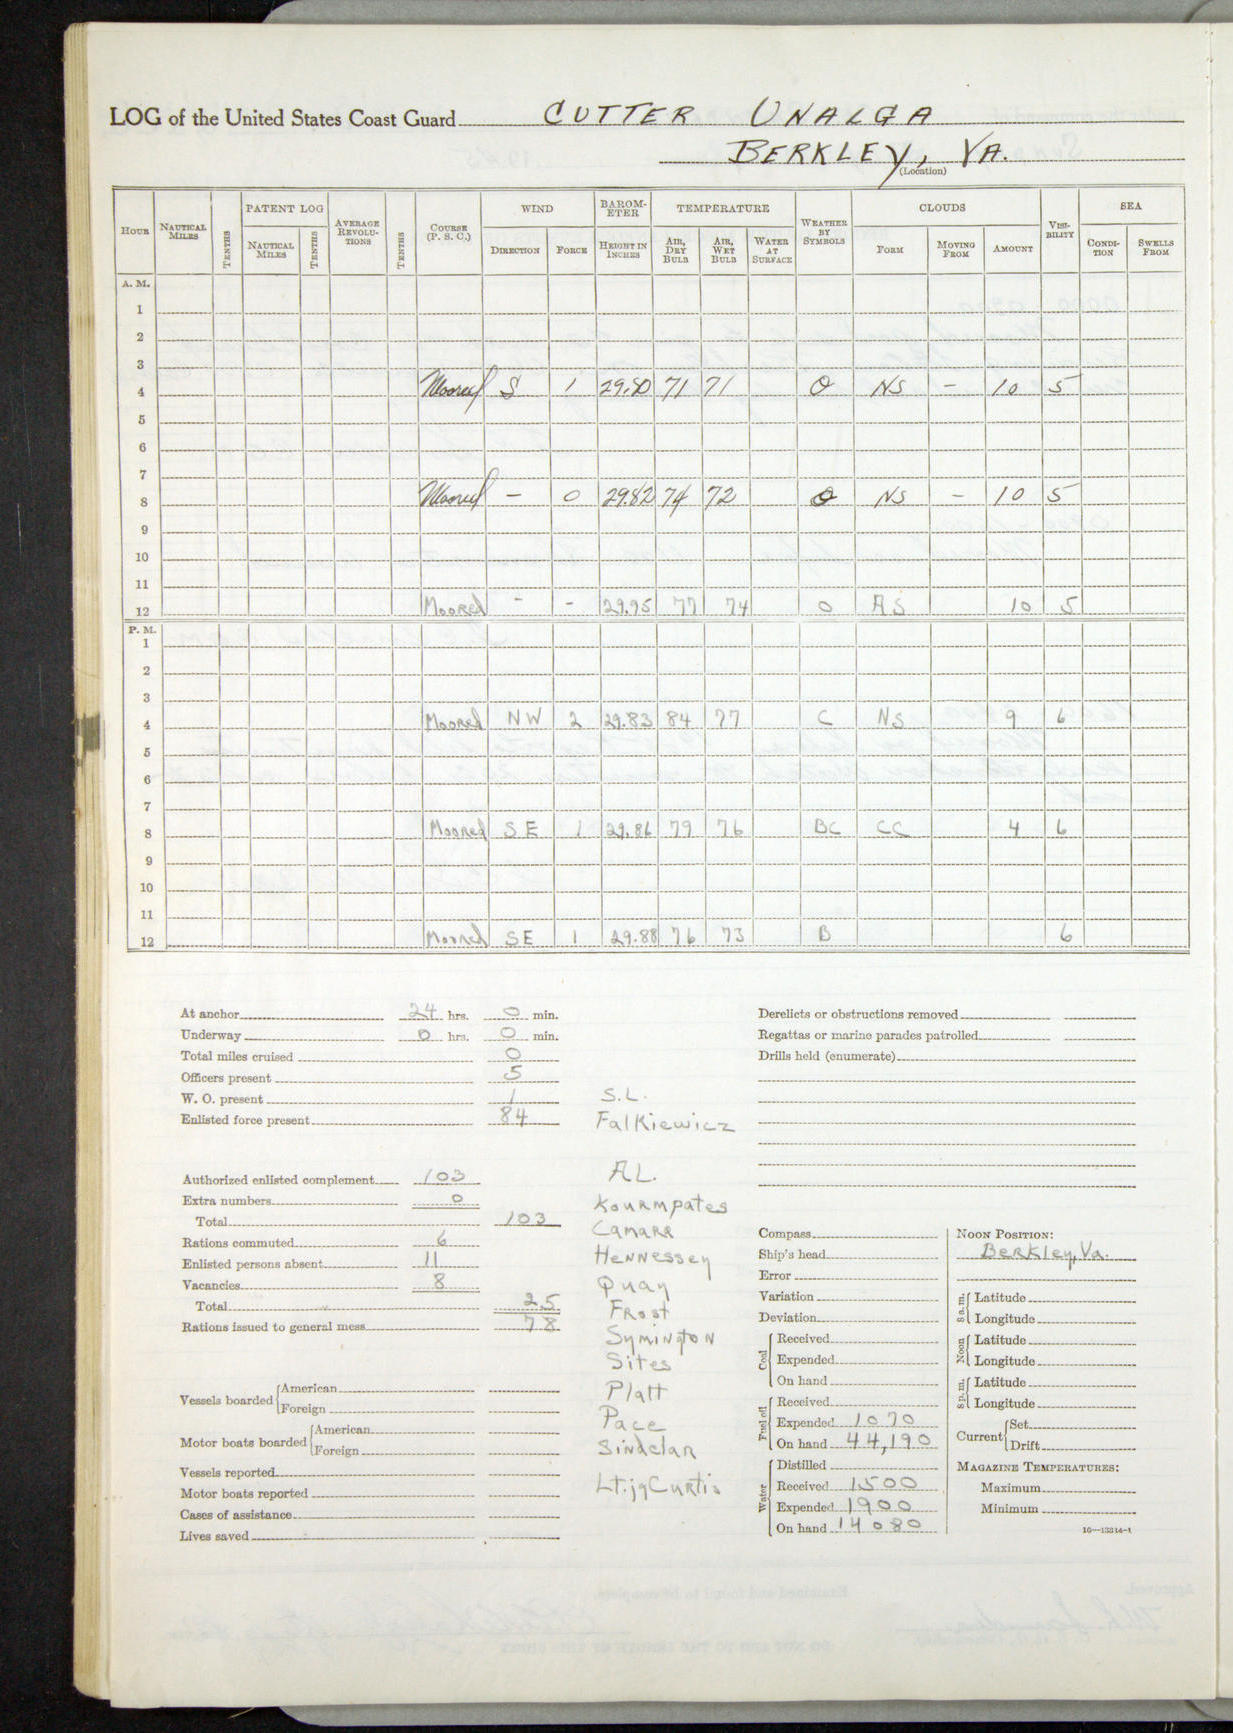 LOG of the United States Coast Guard CUTTER UNALGA
BERKLEY, VA.
(Location)
HOUR NAUTICAL MILES TENTHS PATENT LOG NAUTICAL MILES TENTHS AVERAGE REVOLUTIONS TENTHS COURSE (P. S. C.) WIND DIRECTION FORCE BAROMETER HEIGHT IN INCHES TEMPERATURE AIR, DRY BULB AIR, WET BULB WATER AT SURFACE WEATHER BY SYMBOLS CLOUDS FORM MOVING FROM AMOUNT VISIBILITY SEA CONDITION SWELLS FROM
A. M.
1
2
3
4 Moored S 1 29.80 71 71 O NS – 10 5
5
6
7
8 Moored – 0 29.82 74 72 O NS – 10 5
9
10
11
12 Moored – – 29.95 77 74 O AS 10 5
P. M.
1
2
3
4 Moored NW 2 29.83 84 77 C NS 9 6
5
6
7
8 Moored SE 1 29.86 79 76 BC CC 4 6
9
10
11
12 Moored SE 1 29.88 76 73 B 6
At anchor 24 hrs. 0 min.
Underway 0 hrs. 0 min.
Total miles cruised 0
Officers present 5
W. O. present 1
Enlisted force present 84
Authorized enlisted complement 103
Extra numbers 0
Total 103
Rations commuted 6
Enlisted persons absent 11
Vacancies 8
Total 25
Rations issued to general mess 78
Vessels boarded American
Foreign
Motor boats boarded American
Foreign
Vessels reported
Motor boats reported
Cases of assistance
Lives saved
S.L.
Falkiewicz
AL.
Kourmpates
Camarr
Hennessey
Quay
Frost
Symington
Sites
Platt
Pace
Sindelar
Lt.jg Curtis
Derelicts or obstructions removed
Regattas or marine parades patrolled
Drills held (enumerate)
Compass
Ship's head
Error
Variation
Deviation
Coal Received
Expended
On hand
Fuel oil Received
Expended 1070
On hand 44,190
Water Distilled
Received 1500
Expended 1900
On hand 14080
NOON POSITION:
Berkley, Va.
8 a. m. Latitude
Longitude
Noon Latitude
Longitude
8 p. m. Latitude
Longitude
Current Set
Drift
MAGAZINE TEMPERATURES:
Maximum
Minimum
16—13314-1